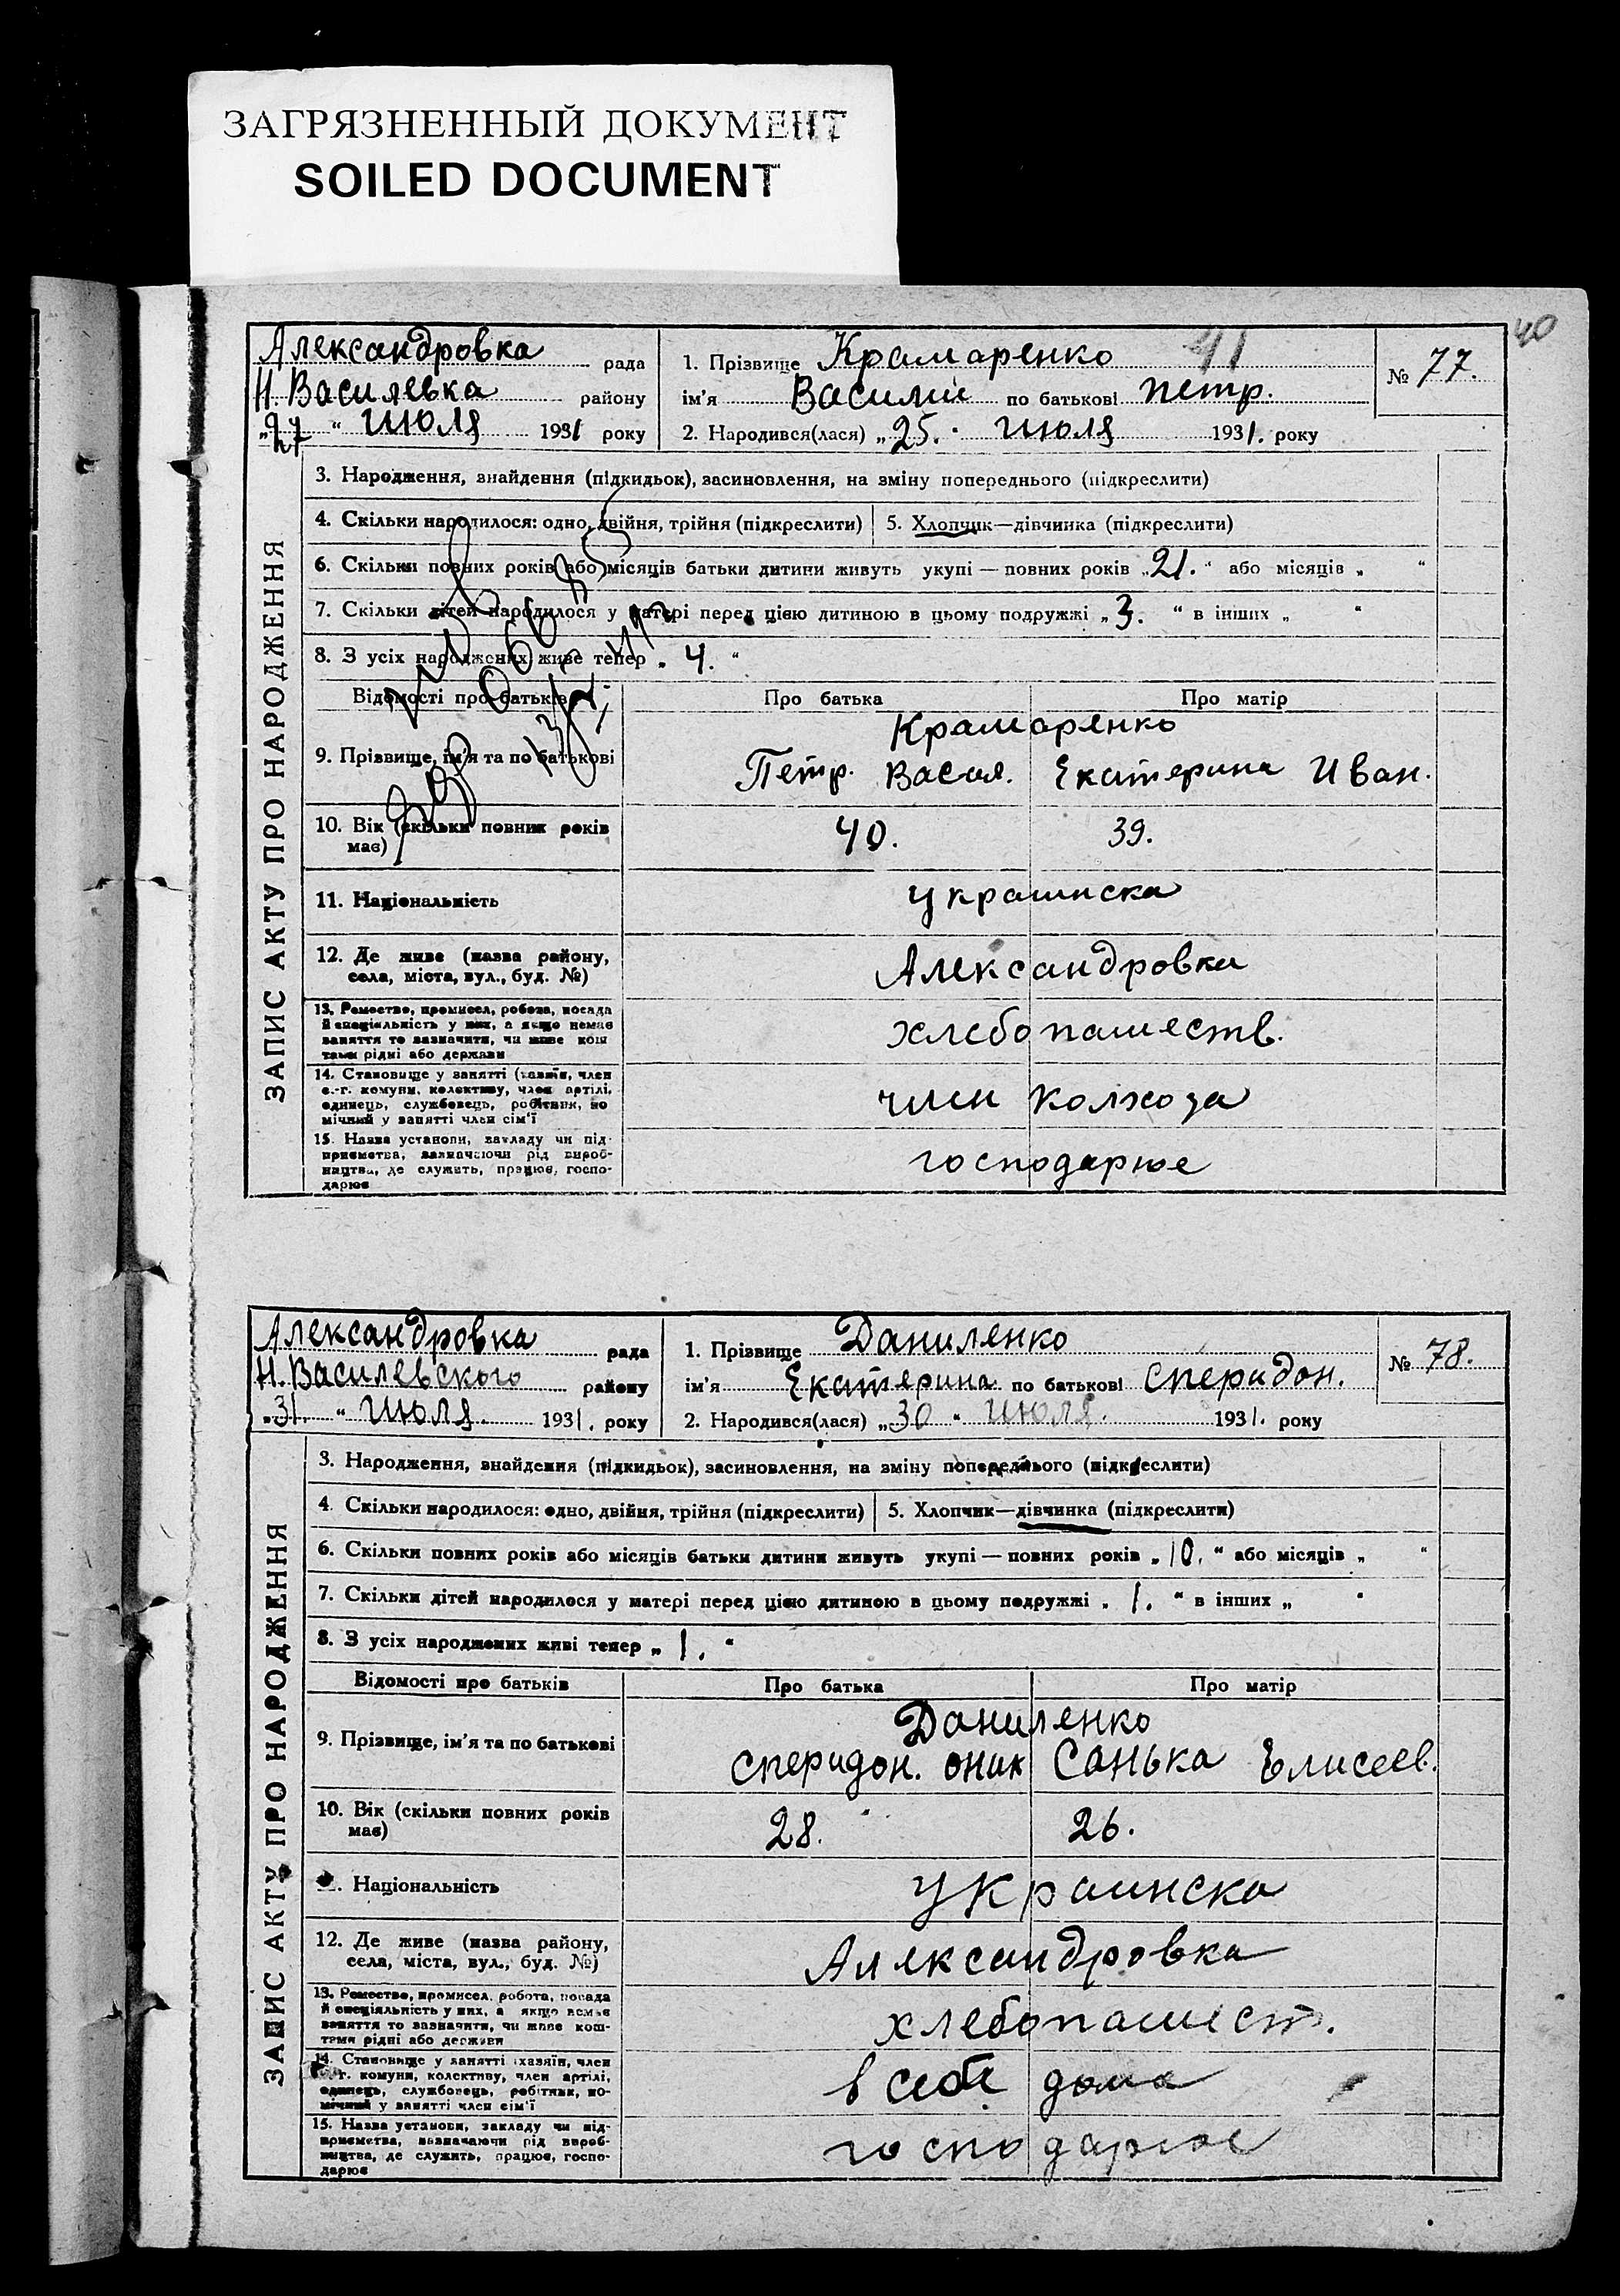 ЗАГРЯЗНЕННЫЙ ДОКУМЕНТ
SOILED DOCUMENT
40
41
Александровка рада
Н. Василевка району
„27“ июля 1931 року
1. Прізвище Крамаренко
ім'я Василий по батькові петр.
2. Народився(лася) „25.“ июля 1931. року
№ 77.
ЗАПИС АКТУ ПРО НАРОДЖЕННЯ
3. Народження, знайдення (підкидьок), засиновлення, на зміну попереднього (підкреслити)
4. Скільки народилося: одно, двійня, трійня (підкреслити) 5. Хлопчик—дівчинка (підкреслити)
6. Скільки повних років або місяців батьки дитини живуть укупі — повних років „21.“ або місяців „ “
7. Скільки дітей народилося у матері перед цією дитиною в цьому подружжі „3.“ в інших „ “
8. З усіх народжених живе тепер „4.“
Відомості про батьків Про батька Про матір
Крамаренко
9. Прізвище, ім'я та по батькові Петр. Васил. Екатерина Иван.
10. Вік (скільки повних років має) 40. 39.
11. Національність украинска
12. Де живе (назва району,
села, міста, вул., буд. №) Александровка
13. Ремество, промисел, робота, посада
й спеціяльність у них, а якщо немає
заняття то зазначити, чи живе кош
тами рідні або держави
хлебопашеств.
14. Становище у занятті (хазяїн, член
с.-г. комуни, колективу, член артілі,
одинець, службовець, робітник, по
мічний у занятті член сім'ї
член колхоза
15. Назва установи, закладу чи під-
приємства, зазначаючи рід вироб-
ництва, де служить, працює, госпо-
дарює
господарює
Александровка рада
Н. Василевского району
„31.“ июля. 1931. року
1. Прізвище Даниленко
ім'я Екатерина по батькові Сперидон.
2. Народився(лася) „30“ июля. 1931. року
№ 78.
ЗАПИС АКТУ ПРО НАРОДЖЕННЯ
3. Народження, знайдення (підкидьок), засиновлення, на зміну попереднього (підкреслити)
4. Скільки народилося: одно, двійня, трійня (підкреслити) 5. Хлопчик—дівчинка (підкреслити)
6. Скільки повних років або місяців батьки дитини живуть укупі — повних років „10.“ або місяців „ “
7. Скільки дітей народилося у матері перед цією дитиною в цьому подружжі „1.“ в інших „ “
8. З усіх народжених живі тепер „1.“
Відомості про батьків Про батька Про матір
Даниленко
9. Прізвище, ім'я та по батькові Сперидон. оник Санька Елисеев.
10. Вік (скільки повних років має) 28. 26.
Національність украинска
12. Де живе (назва району,
села, міста, вул., буд. №) Александровка
13. Ремество, промисел, робота, посада
й спеціяльність у них, а якщо немає
заняття то зазначити, чи живе кош-
тами рідні або держави
хлебопашест.
14. Становище у занятті (хазяїн, член
с.-г. комуни, колективу, член артілі,
одинець, службовець, робітник, по-
мічний у занятті член сім'ї
в себе дома
15. Назва установи, закладу чи під-
приємства, зазначаючи рід вироб-
ництва, де служить, працює, госпо-
дарює
господарює